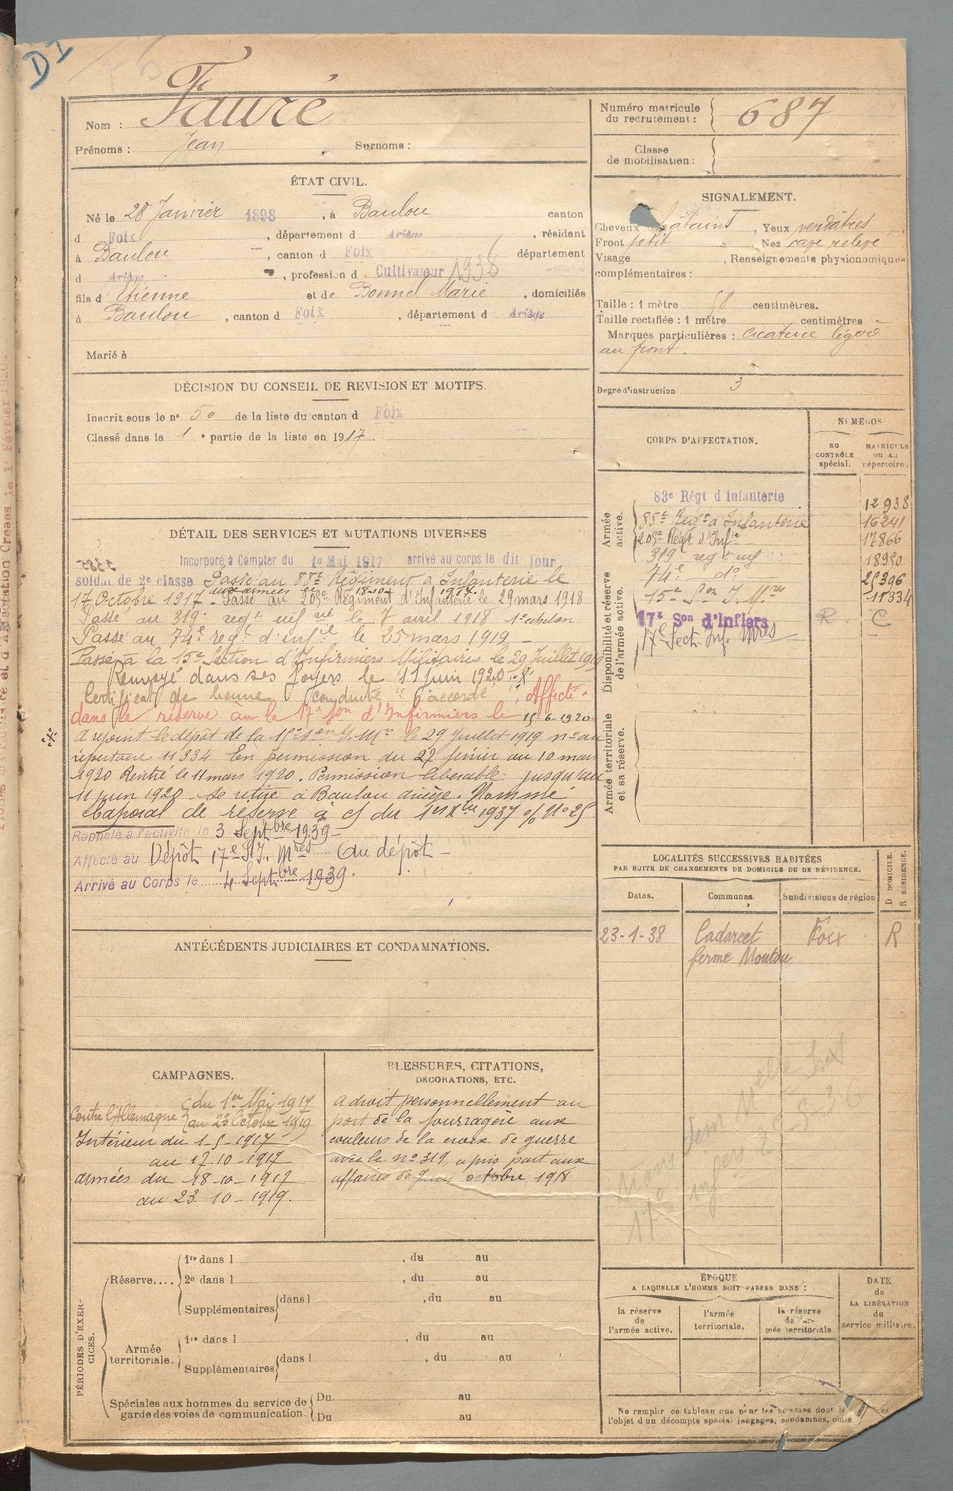 D1
Nom : Fauré
Prénoms : Jean Surnoms :
Numéro matricule du recrutement : 687
Classe de mobilisation :
ÉTAT CIVIL.
Né le 28 Janvier 1898, à Baulou canton
d Foix, département d Ariège, résidant
à Baulou, canton d Foix département
d Ariège, profession d Cultivateur 1936
fils d Etienne et de Bonnel Marie, domiciliés
à Baulou, canton d Foix, département d Ariège
Marié à
SIGNALEMENT.
Cheveux châtains, Yeux verdâtres
Front petit Nez cave relevé
Visage , Renseignements physionomiques
complémentaires :
Taille : 1 mètre 58 centimètres.
Taille rectifiée : 1 mètre centimètres
Marques particulières : cicatrice légère
au front.
Degré d'instruction 3
DÉCISION DU CONSEIL DE REVISION ET MOTIFS.
Inscrit sous le n° 50 de la liste du canton d Foix
Classé dans la 1e partie de la liste en 1917
CORPS D'AFFECTATION.
NUMÉROS
AU CONTRÔLE spécial.
MATRICULE OU AU répertoire.
Armée active.
83e Régt d'Infanterie 12938
88e Régt d'Infanterie 16241
209e Régt d'Infie 17366
319e regt inf 18950
74e do 25396
15e Son I. Mres 11334
Disponibilité et réserve de l'armée active.
17e Son d'Infiers R C
17e Sect. Inf. Mres
Armée territoriale et sa réserve.
DÉTAIL DES SERVICES ET MUTATIONS DIVERSES
Incorporé à Compter du 1er Mai 1917 arrivé au corps le dit jour
soldat de 2e classe Passé au 88e Régiment d'Infanterie le
aux armées 18-10-1917
17 Octobre 1917 - Passé au 209e Régiment d'Infanterie le 29 mars 1918
Passé au 319e regt inf le 7 avril 1918 1er échelon
Passé au 74e regt d'infie le 25 mars 1919
Passé à la 15e Section d'Infirmiers Militaires le 29 Juillet 1919
Renvoyé dans ses foyers le 11 juin 1920
Certificat de bonne conduite "accordé". Affecté
dans la réserve à la 17e Son d'Infirmiers le 15-6-1920
A rejoint le dépôt de la 15e Son I. Mre le 29 Juillet 1919 n° au
répertoire 11334 En permission du 27 février au 10 mars
1920 Rentré le 11 mars 1920. Permission libérable jusqu'au
11 juin 1920 se retire à Baulou Ariège. Nommé
Caporal de réserve à c/ du 1er Xbre 1937 o/ N° 25
Rappelé à l'activité le 3 Septbre 1939
Affecté au Dépôt 17e S.I. Mres Au dépôt
Arrivé au Corps le 4 Septbre 1939.
LOCALITÉS SUCCESSIVES HABITÉES
PAR SUITE DE CHANGEMENTS DE DOMICILE OU DE RÉSIDENCE.
Dates. Communes. Subdivisions de région D DOMICILE. R RÉSIDENCE.
23-1-38 Cadarcet Foix R
ferme Moutou
ANTÉCÉDENTS JUDICIAIRES ET CONDAMNATIONS.
CAMPAGNES.
Contre l'Allemagne du 1er Mai 1917
au 23 Octobre 1919
Intérieur du 1-5-1917
au 17-10-1917
armées du 18-10-1917
au 23-10-1919.
BLESSURES, CITATIONS,
DÉCORATIONS, ETC.
A droit personnellement au
port de la fourragère aux
couleurs de la croix de guerre
avec le n° 319, a pris part aux
affaires de octobre 1918
PÉRIODES D'EXERCICES.
Réserve....
1re dans l , du au
2e dans l , du au
Supplémentaires dans l , du au
Armée territoriale.
1re dans l , du au
Supplémentaires dans l , du au
Spéciales aux hommes du service de
garde des voies de communication.
Du au
Du au
ÉPOQUE
A LAQUELLE L'HOMME DOIT PASSER DANS :
la réserve de l'armée active.
l'armée territoriale.
la réserve de l'armée territoriale
DATE de LA LIBÉRATION du service militaire.
Ne remplir ce tableau que pour les hommes dont le
l'objet d'un décompte spécial (engagés, condamnés, omis